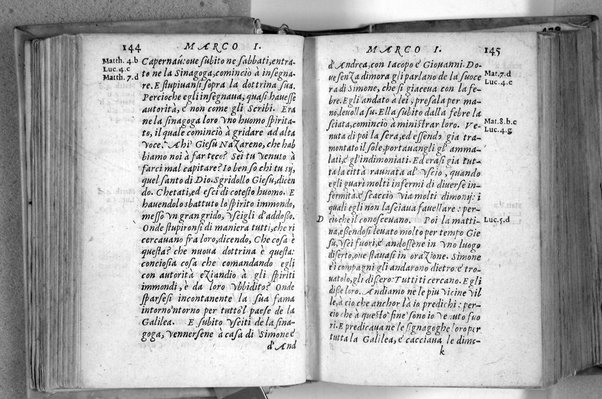 144 MARCO I.
Matth. 4.b
Luc. 4.c
Matth. 7.d
Capernau: oue subito ne sabbati, entra-
to ne la Sinagoga, cominciò a insegna-
re. E stupiuansi sopra la dottrina sua.
Percioche egli insegnaua, quasi hauesse
autorità, e non come gli Scribi. Era
ne la sinagoga loro vno huomo spirita-
to, il quale cominciò à gridare ad alta
voce. Ahi Giesu Nazareno, che hab
biamo noi à far teco? Sei tu venuto à
farci mal capitare? Io ben so chi tu sij,
quel santo di Dio. Sgridollo Giesu, dicen
do. Chetati, ed esci di cotesto huomo. E
hauendolo sbattuto lo spirito immondo,
messo vn gran grido, vscigli d'addosso.
Onde stupironsi di maniera tutti, che ri
cercauano fra loro, dicendo, Che cosa è
questa? che nuoua dottrina è questa?
conciosia cosa che comandando egli
con autorità eziandio à gli spiriti
immondi, è da loro vbbidito? Onde
sparsesi incontanente la sua fama
intorno'ntorno per tutto'l paese de la
Galilea. E subito vsciti de la sina-
goga, vennersene à casa di Simone e
d'And
MARCO I. 145
d'Andrea, con Iacopo e Giouanni. Do-
ue senza dimora gli parlano de la suoce
ra di Simone, che si giaceua con la fe-
bre. Egli andato à lei, presala per ma-
no, leuolla su. Ella subito dalla febre la
sciata, cominciò à ministrar loro. Ve-
nuta di poi la sera, ed essendo gia tra-
montato il sole, portauangli gli amma-
lati, e gli indimoniati. Ed erasi gia tut-
ta la città raunata al vscio, quando
egli guarì molti infermi di diuerse in-
fermità, e scacciò via molti dimonij: i
quali egli non lasciaua fauellare: per-
cioche il conosceuano. Poi la matti-
na, essendosi leuato molto per tempo Gie
su, vscì fuori, e andossene in vno luogo
diserto, oue stauasi in orazione. Simone
e i compagni gli andarono dietro: e tro
uatolo, gli dissero: Tutti ti cercano. Egli
disse loro. Andiamo ne le piu vicine vil
le, à cio che anchor là io predichi: per-
cio che à questo fine sono io venuto fuo
ri. E predicaua ne le signoghe loro per
tutta la Galilea, e cacciaua le dimo-
k
Mat. 7.d
Luc. 4.e
Mat. 8.b.c
Luc. 4.g
D
Luc. 5.d